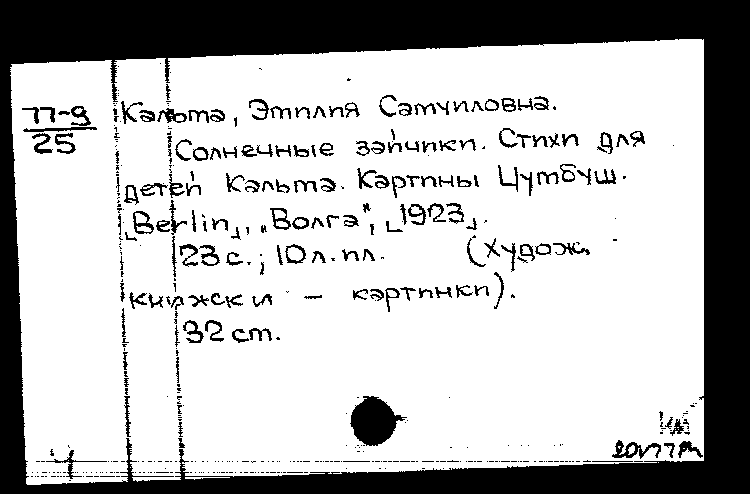 77-9
25
Кальма, Эмилия Самуиловна.
Солнечные зайчики. Стихи для
детей Кальма. Картины Цумбуш.
[Berlin], "Волга", [1923].
23 с.; 10 л. ил. (Худож.
книжски – картинки).
32 cm.
Ч